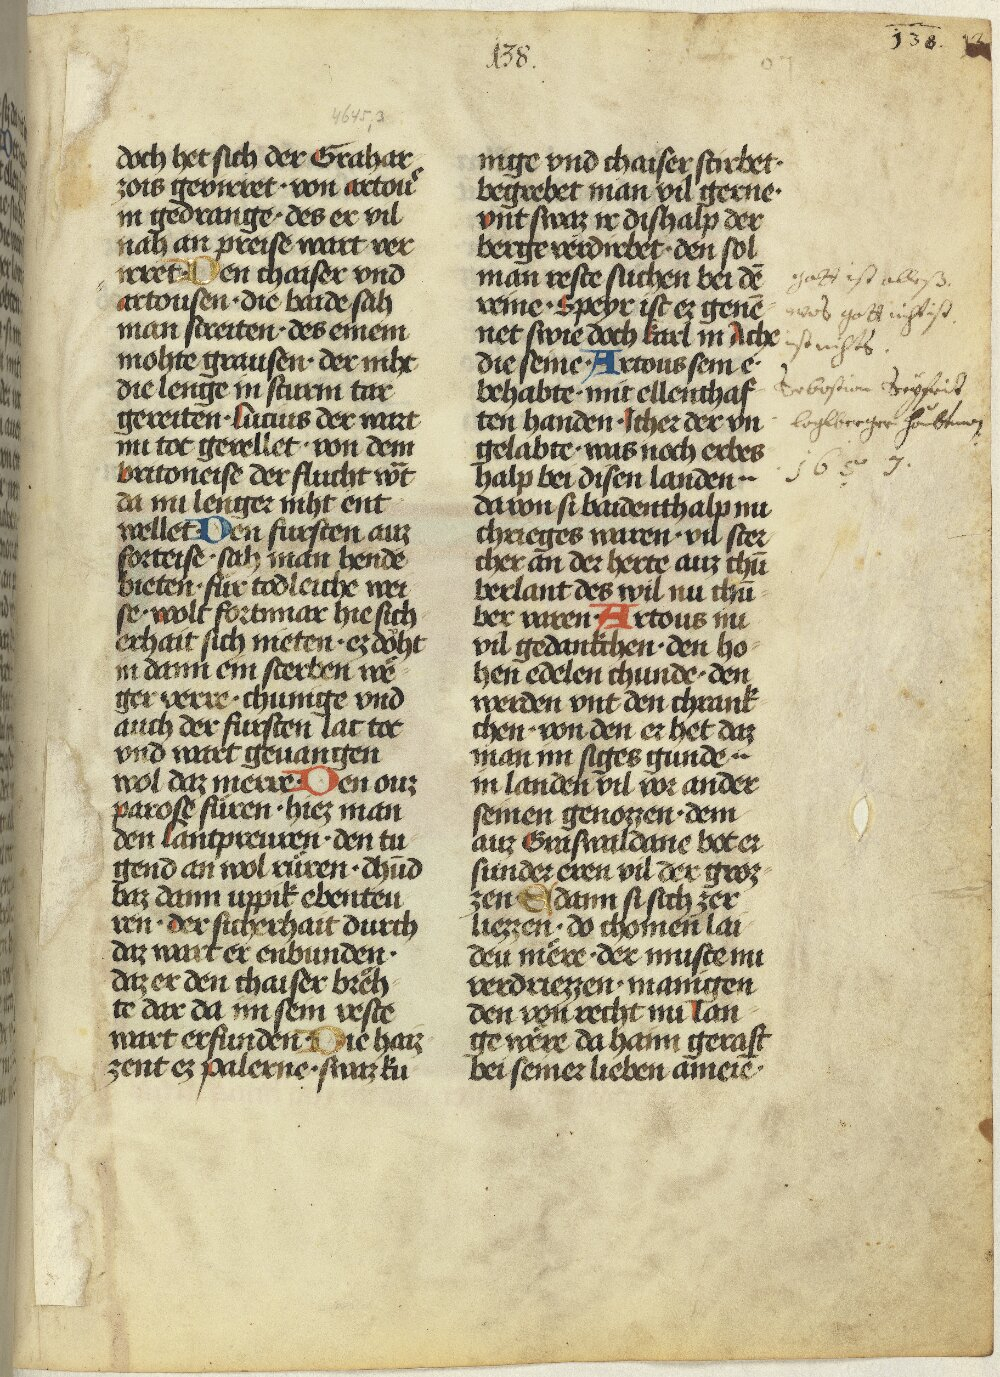 138.
138.
4645,3
doch het sich der Grahar
zois gevirret · von artous
in gedrange · des er vil
nah an preise wart ver
irret · Den chaiser vnd
artousen · die baide sah
man streiten · des einem
mohte grausen · der niht
die lenge in sturm tar
gereiten · Lucius der wart
nu tot gevellet · von dem
britoneise der flucht wͦt
da nu lenger niht ent
wellet Den fursten auz
forteise · sah man hende
bieten · für todleiche wei
se · wolt fortimar hie sich
erhait sich nieten · ez döht
in dann ein sterben we
ger verre · chunige vnd
auch der fursten lac tot
vnd wart geuangen
wol daz merre · Den ouz
parose füren · hiez man
den Lantpreuren · den tu
gend an wol rüren · chūd
baz dann uppik ebenteu
ren · der sicherhait durch
daz wart er enbunden ·
daz er den chaiser bræh
te dar da im sein veste
wart erfunden · Die haiz
zent ez palerne · swaz ku
nige vnd chaiser stirbet ·
begrebet man vil gerne ·
vnt swaz ir dishalp der
berge verdirbet · den sol
man veste suchen bei dē
reine · Speyr ist ez genē
net swie doch karl in Ache
die seine · Artous sein e ·
behabte · mit ellenthaf
ten handen · Ither der vn
gelabte · was noch erbes
halp bei disen landen ··
da von si baidenthalp nu
chrieges waren · vil ster
cher an der herte auz chū
berlant des wil nu chū
ber varen · Artous nu
vil gedankchen · den ho
hen edelen chunde · den
werden vnt den chrank
chen · von den er het daz
man im siges gunde ··
in landen vil vor ander
seinen genozzen · dem
auz Graswaldane bot er
sunder eren vil der groz
zen · E dann si sich zer
liezzen · do chomen lai
deu mere · der muste nu
verdriezzen · manigen
den von recht nu lan
ge were da haim gerast
bei seiner lieben āmeiē ·
gott ist alless.
was gott nicht ist.
ist nichts.
Sebastian Seyfrit
haubtman
1657.